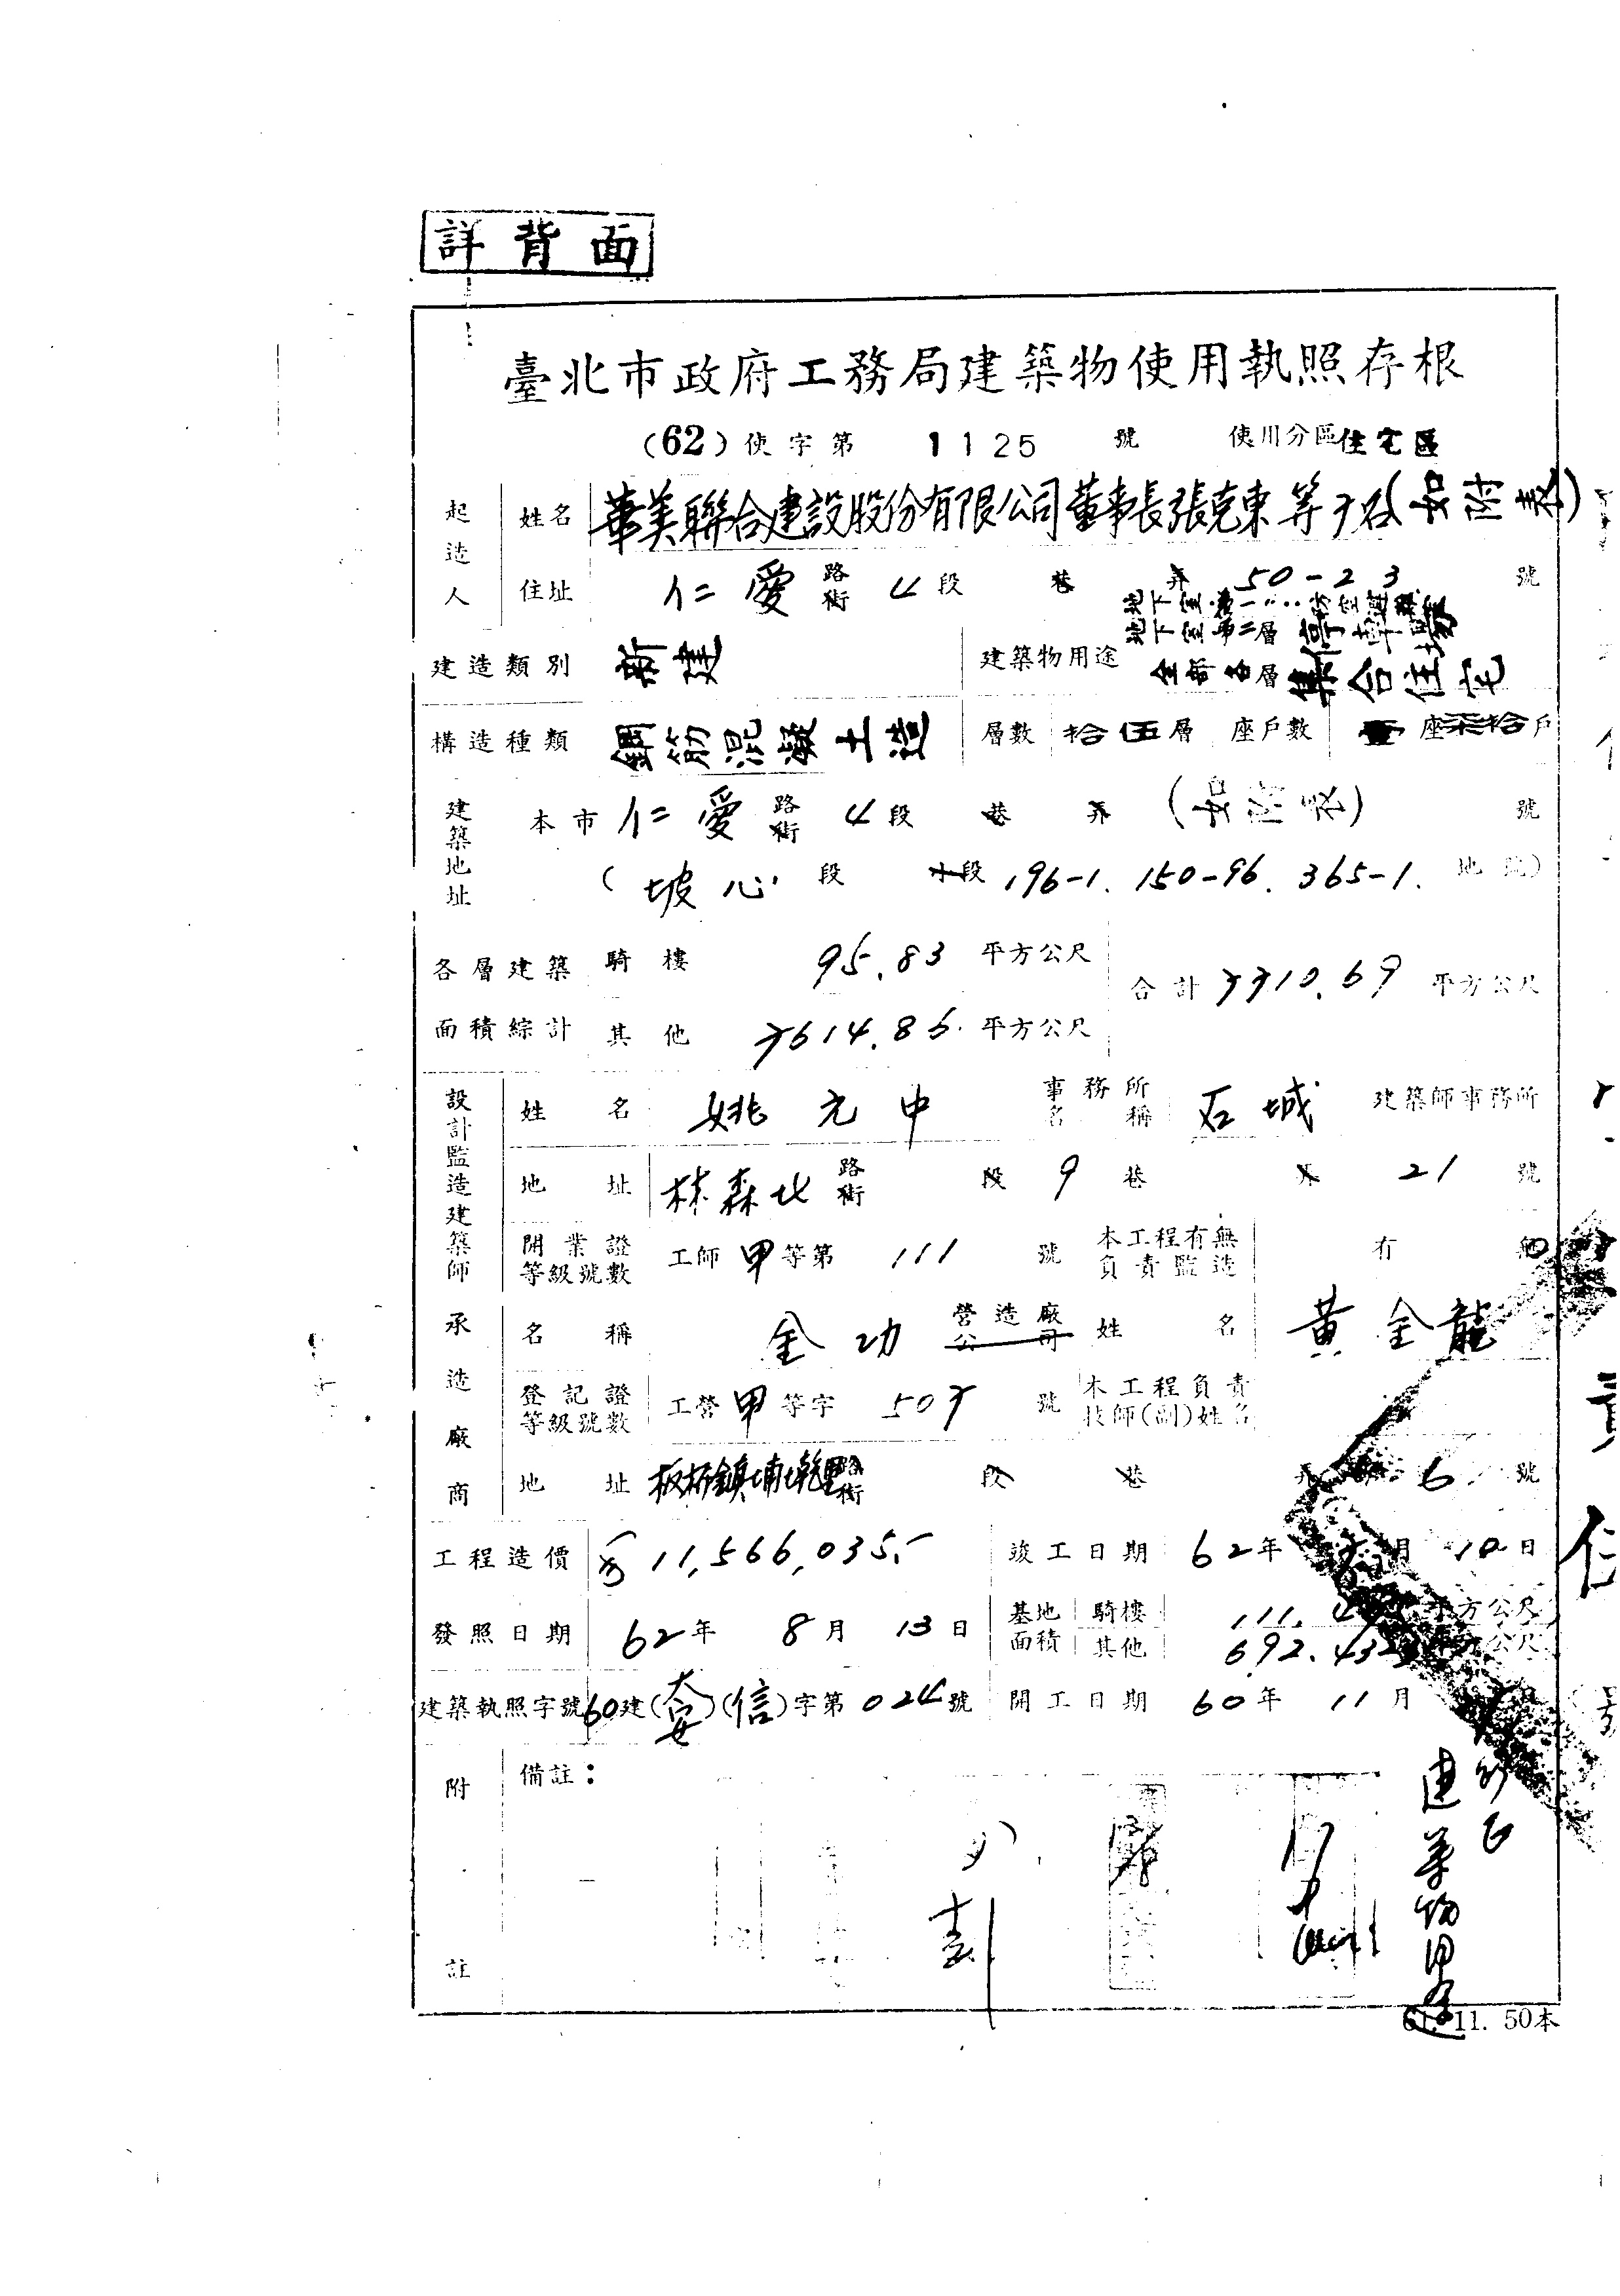 詳背面
臺北市政府工務局建築物使用執照存根
(62)使字第 1125 號 使用分區 住宅區
起造人 姓名 華美聯合建設股份有限公司董事長張克東等7名(如附表)
住址 仁愛 路街 4段 巷 弄 50-23 號
地下室第二層停車場
建造類別 新建 建築物用途 全部各層集合住宅
構造種類 鋼筋混凝土造 層數 拾伍層 座戶數 壹座柒拾戶
建築地址 本市 仁愛 路街 4段 巷 弄 (如附表) 號
(坡心 段 小段 196-1. 150-96. 365-1. 地號)
各層建築面積綜計 騎樓 95.83 平方公尺 合計 7710.69 平方公尺
其他 7614.86 平方公尺
設計監造建築師 姓名 姚元中 事務所名稱 石城 建築師事務所
地址 林森北 路街 段 9 巷 弄 21 號
開業證等級號數 工師 甲 等第 111 號 本工程有無負責監造 有 無
承造廠商 名稱 金功 營造廠公司 姓名 黃金龍
登記證等級號數 工營 甲 等字 507 號 本工程負責技師(副)姓名
地址 板橋鎮埔墘里 路街 段 巷 弄 6 號
工程造價 11,566,035.- 竣工日期 62年 月 10日
發照日期 62年 8月 13日 基地面積 騎樓 111. 平方公尺
其他 692.432 平方公尺
建築執照字號 60建(大安)(信)字第024號 開工日期 60年 11月
附註 備註：
建築物用途
61. 11. 50本